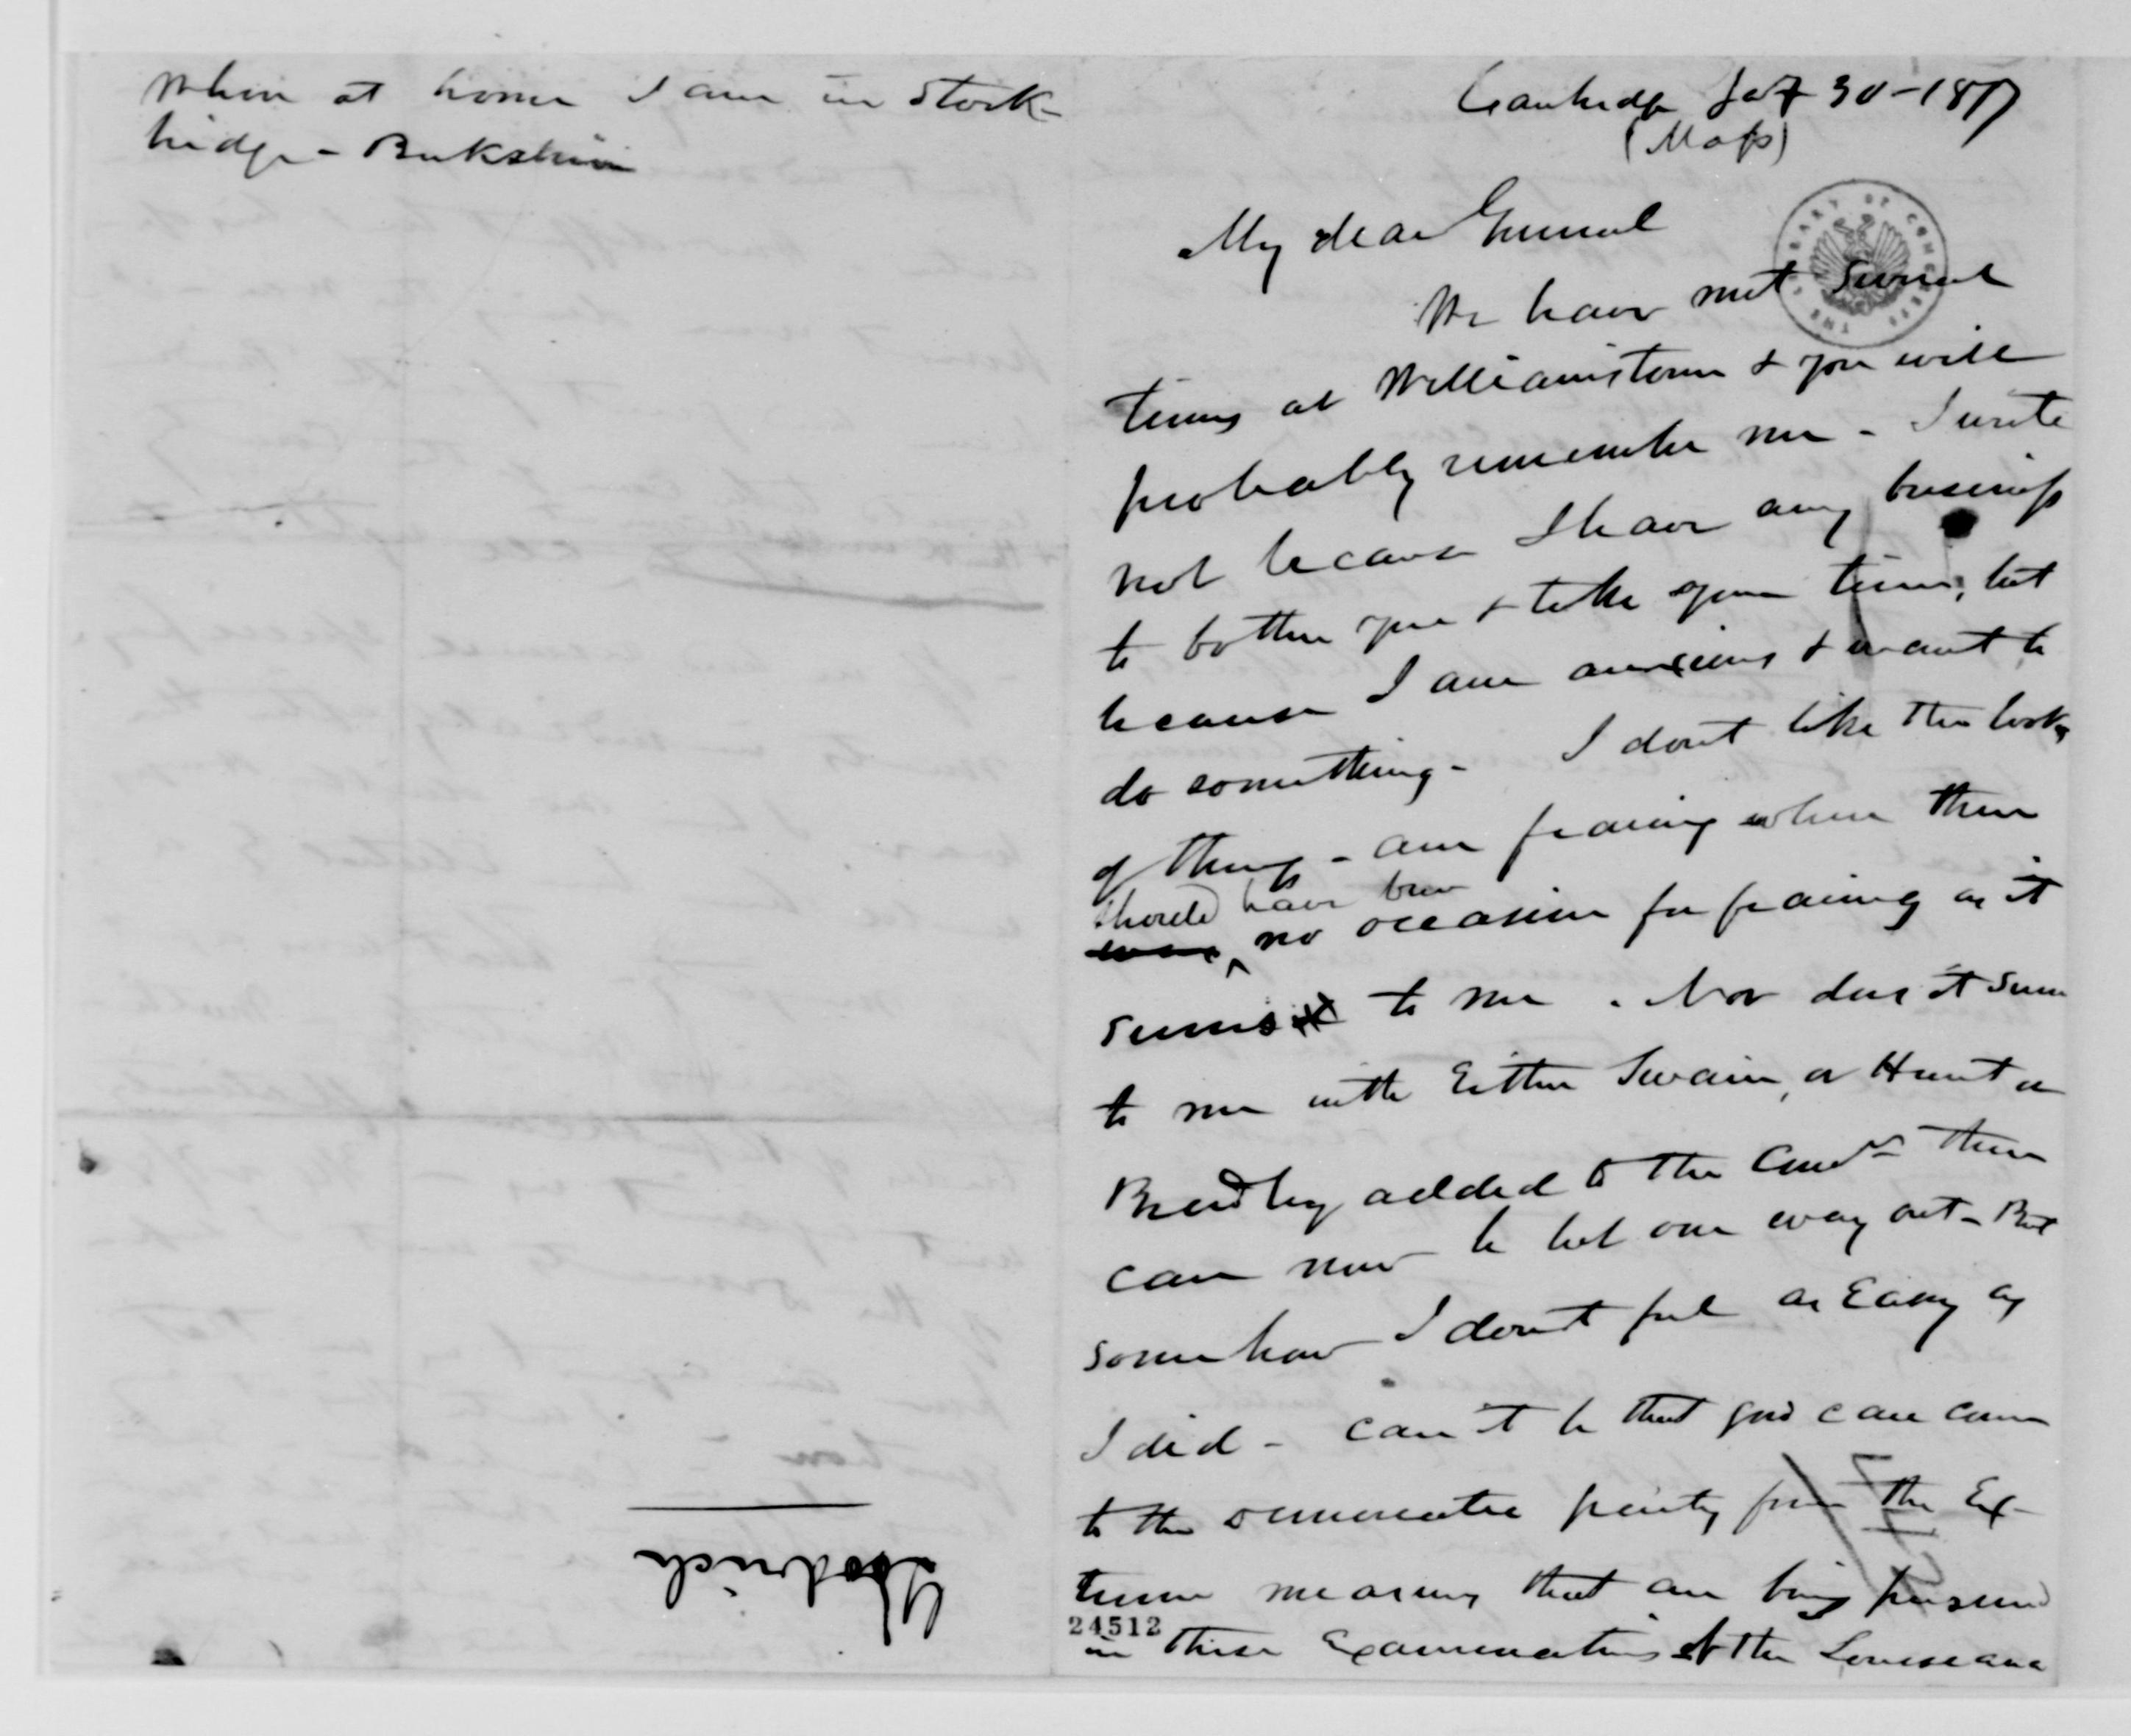 When at home I am in Stock-
bridge - Berkshire
Goodrich
Cambridge Jany 30 - 1877
(Mass)
THE LIBRARY OF CONGRESS
My dear General
We have met several
times at Williamstown & you will
probably remember me - I write
not because I have any business
to bother you & take your time, but
because I am anxious & want to
do something - I dont like the looks
of things - am fearing where there
should have been
no occasion for fearing as it
seems to me . Nor does it seem
to me with Either Swain, or Hunt or
Bradley added to the there
can now be but one way out - But
somehow I dont feel as Easy as
I did - can it be that good can come
to the democratic party from the Ex-
treme measures that are being pursued
24512
in these Examinations of the Louisiana